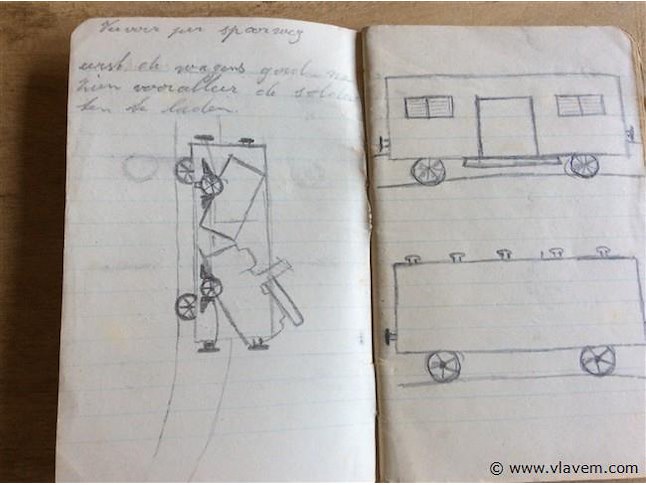 Vervoer per spoorweg
eerst de wagens goed na
zien vooralleer de solda
ten te laden.
© www.vlavem.com